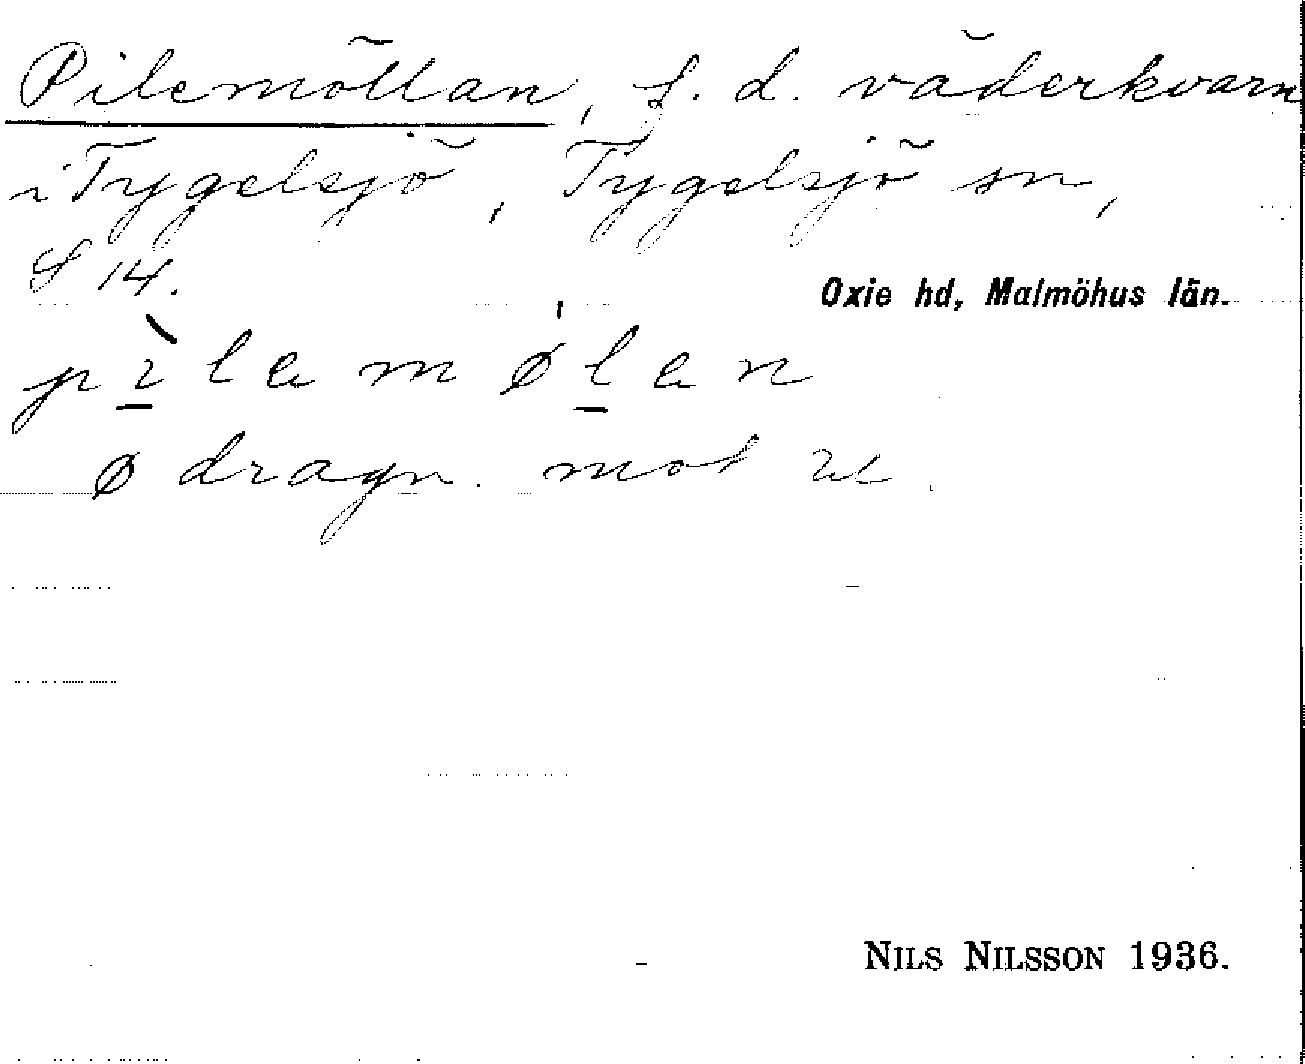 Pilemöllan, f. d. väderkvarn
i Tygelsjö, Tygelsjö sn,
S 14.
Oxie hd, Malmöhus län.
pìlamølan
ø dragn. mot
NILS NILSSON 1936.